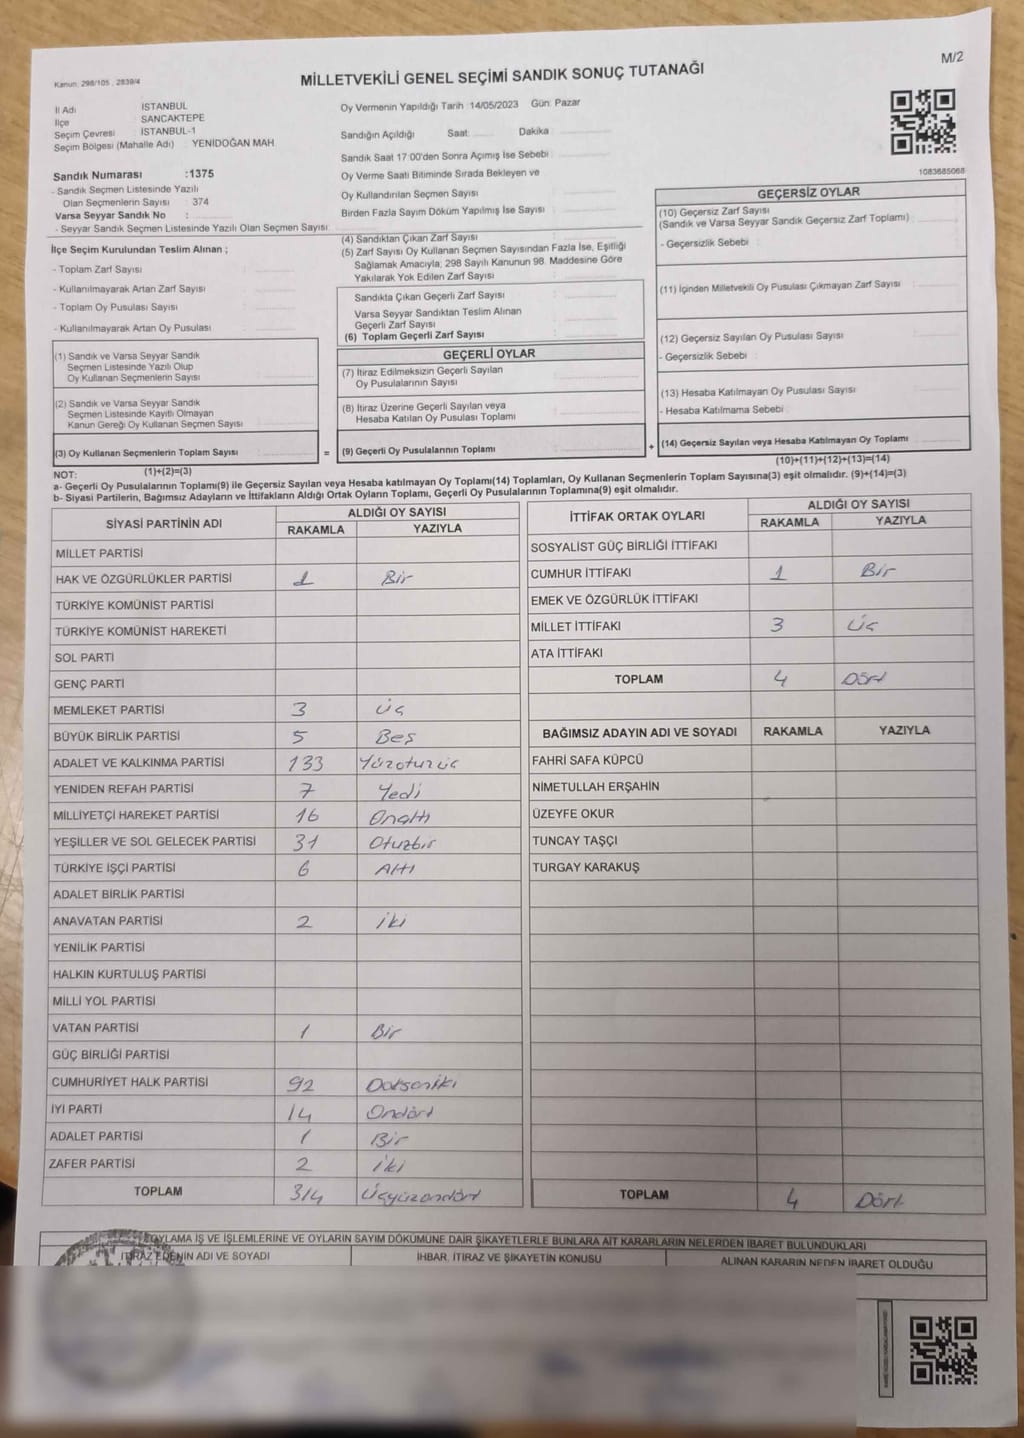 M/2
Kanun: 298/105 , 2839/4
MİLLETVEKİLİ GENEL SEÇİMİ SANDIK SONUÇ TUTANAĞI
İl Adı İSTANBUL
İlçe SANCAKTEPE
Seçim Çevresi İSTANBUL-1
Seçim Bölgesi (Mahalle Adı) : YENİDOĞAN MAH.
Sandık Numarası :1375
- Sandık Seçmen Listesinde Yazılı
Olan Seçmenlerin Sayısı : 374
Varsa Seyyar Sandık No :
- Seyyar Sandık Seçmen Listesinde Yazılı Olan Seçmen Sayısı :
Oy Vermenin Yapıldığı Tarih :14/05/2023 Gün: Pazar
Sandığın Açıldığı Saat: Dakika :
Sandık Saat 17:00'den Sonra Açımış İse Sebebi :
Oy Verme Saati Bitiminde Sırada Bekleyen ve
Oy Kullandırılan Seçmen Sayısı :
Birden Fazla Sayım Döküm Yapılmış İse Sayısı :
1083685068
İlçe Seçim Kurulundan Teslim Alınan ;
- Toplam Zarf Sayısı :
- Kullanılmayarak Artan Zarf Sayısı :
- Toplam Oy Pusulası Sayısı :
- Kullanılmayarak Artan Oy Pusulası :
(1) Sandık ve Varsa Seyyar Sandık
Seçmen Listesinde Yazılı Olup
Oy Kullanan Seçmenlerin Sayısı :
(2) Sandık ve Varsa Seyyar Sandık
Seçmen Listesinde Kayıtlı Olmayan
Kanun Gereği Oy Kullanan Seçmen Sayısı :
(3) Oy Kullanan Seçmenlerin Toplam Sayısı :
=
(1)+(2)=(3)
(4) Sandıktan Çıkan Zarf Sayısı :
(5) Zarf Sayısı Oy Kullanan Seçmen Sayısından Fazla İse, Eşitliği
Sağlamak Amacıyla; 298 Sayılı Kanunun 98. Maddesine Göre
Yakılarak Yok Edilen Zarf Sayısı :
Sandıkta Çıkan Geçerli Zarf Sayısı :
Varsa Seyyar Sandıktan Teslim Alınan
Geçerli Zarf Sayısı :
(6) Toplam Geçerli Zarf Sayısı :
GEÇERLİ OYLAR
(7) İtiraz Edilmeksizin Geçerli Sayılan
Oy Pusulalarının Sayısı :
(8) İtiraz Üzerine Geçerli Sayılan veya
Hesaba Katılan Oy Pusulası Toplamı :
(9) Geçerli Oy Pusulalarının Toplamı :
+
GEÇERSİZ OYLAR
(10) Geçersiz Zarf Sayısı
(Sandık ve Varsa Seyyar Sandık Geçersiz Zarf Toplamı) :
- Geçersizlik Sebebi :
(11) İçinden Milletvekili Oy Pusulası Çıkmayan Zarf Sayısı :
(12) Geçersiz Sayılan Oy Pusulası Sayısı :
- Geçersizlik Sebebi :
(13) Hesaba Katılmayan Oy Pusulası Sayısı :
- Hesaba Katılmama Sebebi :
(14) Geçersiz Sayılan veya Hesaba Katılmayan Oy Toplamı :
(10)+(11)+(12)+(13)=(14)
NOT:
a- Geçerli Oy Pusulalarının Toplamı(9) ile Geçersiz Sayılan veya Hesaba katılmayan Oy Toplamı(14) Toplamları, Oy Kullanan Seçmenlerin Toplam Sayısına(3) eşit olmalıdır. (9)+(14)=(3)
b- Siyasi Partilerin, Bağımsız Adayların ve İttifakların Aldığı Ortak Oyların Toplamı, Geçerli Oy Pusulalarının Toplamına(9) eşit olmalıdır.
SİYASİ PARTİNİN ADI ALDIĞI OY SAYISI
RAKAMLA YAZIYLA
MİLLET PARTİSİ
HAK VE ÖZGÜRLÜKLER PARTİSİ 1 Bir
TÜRKİYE KOMÜNİST PARTİSİ
TÜRKİYE KOMÜNİST HAREKETİ
SOL PARTİ
GENÇ PARTİ
MEMLEKET PARTİSİ 3 üç
BÜYÜK BİRLİK PARTİSİ 5 Beş
ADALET VE KALKINMA PARTİSİ 133 Yüzotuzüç
YENİDEN REFAH PARTİSİ 7 Yedi
MİLLİYETÇİ HAREKET PARTİSİ 16 Onaltı
YEŞİLLER VE SOL GELECEK PARTİSİ 31 Otuzbir
TÜRKİYE İŞÇİ PARTİSİ 6 Altı
ADALET BİRLİK PARTİSİ
ANAVATAN PARTİSİ 2 iki
YENİLİK PARTİSİ
HALKIN KURTULUŞ PARTİSİ
MİLLİ YOL PARTİSİ
VATAN PARTİSİ 1 Bir
GÜÇ BİRLİĞİ PARTİSİ
CUMHURİYET HALK PARTİSİ 92 Doksaniki
İYİ PARTİ 14 Ondört
ADALET PARTİSİ 1 Bir
ZAFER PARTİSİ 2 iki
TOPLAM 314 Üçyüzondört
İTTİFAK ORTAK OYLARI ALDIĞI OY SAYISI
RAKAMLA YAZIYLA
SOSYALİST GÜÇ BİRLİĞİ İTTİFAKI
CUMHUR İTTİFAKI 1 Bir
EMEK VE ÖZGÜRLÜK İTTİFAKI
MİLLET İTTİFAKI 3 üç
ATA İTTİFAKI
TOPLAM 4 Dört
BAĞIMSIZ ADAYIN ADI VE SOYADI RAKAMLA YAZIYLA
FAHRİ SAFA KÜPCÜ
NİMETULLAH ERŞAHİN
ÜZEYFE OKUR
TUNCAY TAŞÇI
TURGAY KARAKUŞ
TOPLAM 4 Dört
OYLAMA İŞ VE İŞLEMLERİNE VE OYLARIN SAYIM DÖKÜMÜNE DAİR ŞİKAYETLERLE BUNLARA AİT KARARLARIN NELERDEN İBARET BULUNDUKLARI
İTİRAZ EDENİN ADI VE SOYADI İHBAR, İTİRAZ VE ŞİKAYETİN KONUSU ALINAN KARARIN NEDEN İBARET OLDUĞU